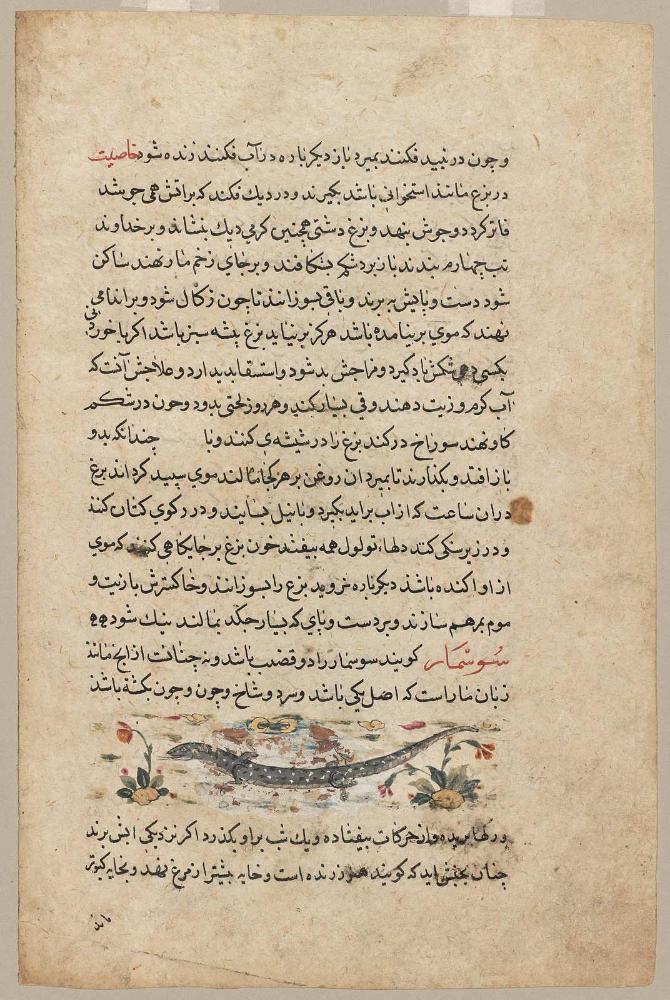 وچون در نبید فکنند بمیرد باز دیکر باره در آب فکنند زنده شود خاصیت
در بزغ مانند استخوانی باشد بکیرند و در دیك فکند که بر آتش همی جوشد
فاتر کردد و جوش بنهد و بزغ دشتی همچنین کرمی دیك بنشاند و بر خداوند
تب چهارم بندند باز برد شکم بشکافند و بر جای زخم مار نهند ساکن
شود دست و پایش به برند و باقی بسوزانند تا چون زکال شود و بر اندامی
نهند که موی بر نیامده باشد هرکز بر نیاید بزغ بیشه سبز باشد اکر با خورد
بکسی دهی شکمش باد کیرد و مزاجش بد شود و استسقا بدید ارد و علاجش آنست که
آب کرم و زیت دهند و قی بسیار کند و هر روز لختی بدود و چون در شکم
کاو نهند سوراخ در کند بزغ را در شیشه‌ی کنند و با چندانکه بدو
باز افتد و بکذارند تا بمیرد ان روغن بر هر کجا بمالند موی سپید کرداند بزغ
در ان ساعت که از آب براید بکیرد و با نیل بسایند و در رکوی کتان کنند
و در زیر سنکی کند دلها، تولول همه بیفتد خون بزغ بر جایکاهی کنند که موی
از او اکنده باشد دیکر باره نروید بزغ را بسوزانند و خاکسترش با زیت و
موم مرهم سازند و بر دست و پای که بسیار خکد بمالند نیك شود
سوسمار کویند سوسمار را دو قضیب باشد و نه چنانست از ایچ مانند
زبان مار است که اصل یکی باشد و سر دو شاخ و چون و چون بکشته باشد
و رکها بریده و از حرکات بیفتاده و یك شب بر او بکذرد اکر نزدیکی اتش برند
چنان بجنبش اید که کویند هنوز زنده است و خایه بیشتر از مرغ نهد و بخایه کبوتر
ماند